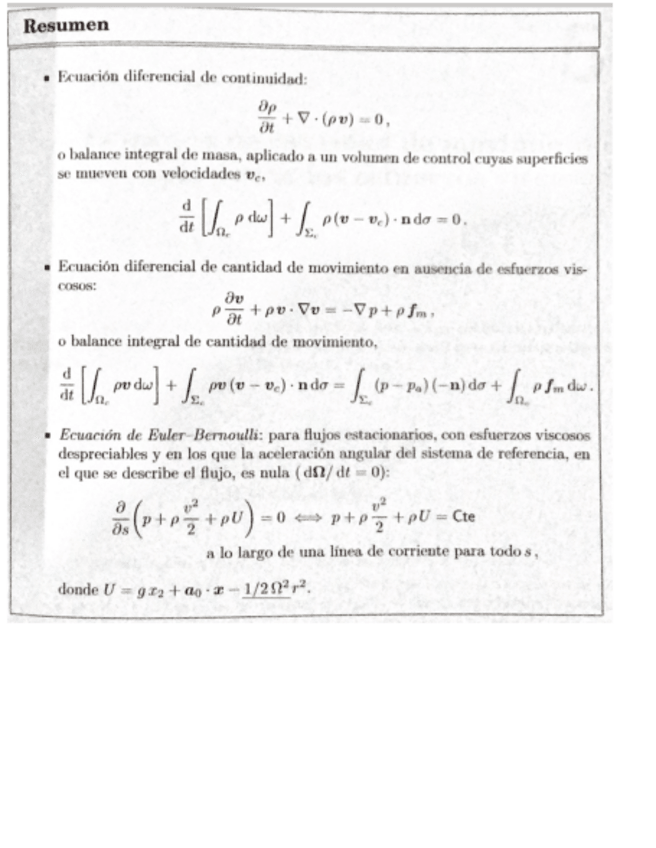 Resumen
▪ Ecuación diferencial de continuidad:
∂ρ/∂t + ∇ · (ρv) = 0,
o balance integral de masa, aplicado a un volumen de control cuyas superficies
se mueven con velocidades v_c,
d/dt [∫_Ωc ρ dω] + ∫_Σc ρ(v − v_c) · n dσ = 0.
▪ Ecuación diferencial de cantidad de movimiento en ausencia de esfuerzos vis-
cosos:
ρ ∂v/∂t + ρv · ∇v = −∇p + ρ f_m,
o balance integral de cantidad de movimiento,
d/dt [∫_Ωc ρv dω] + ∫_Σc ρv (v − v_c) · n dσ = ∫_Σc (p − p_a)(−n) dσ + ∫_Ωc ρ f_m dω.
▪ Ecuación de Euler–Bernoulli: para flujos estacionarios, con esfuerzos viscosos
despreciables y en los que la aceleración angular del sistema de referencia, en
el que se describe el flujo, es nula (dΩ/dt = 0):
∂/∂s (p + ρ v²/2 + ρU) = 0 ⟺ p + ρ v²/2 + ρU = Cte
a lo largo de una línea de corriente para todo s,
donde U = g x₂ + a₀ · x − 1/2 Ω² r².